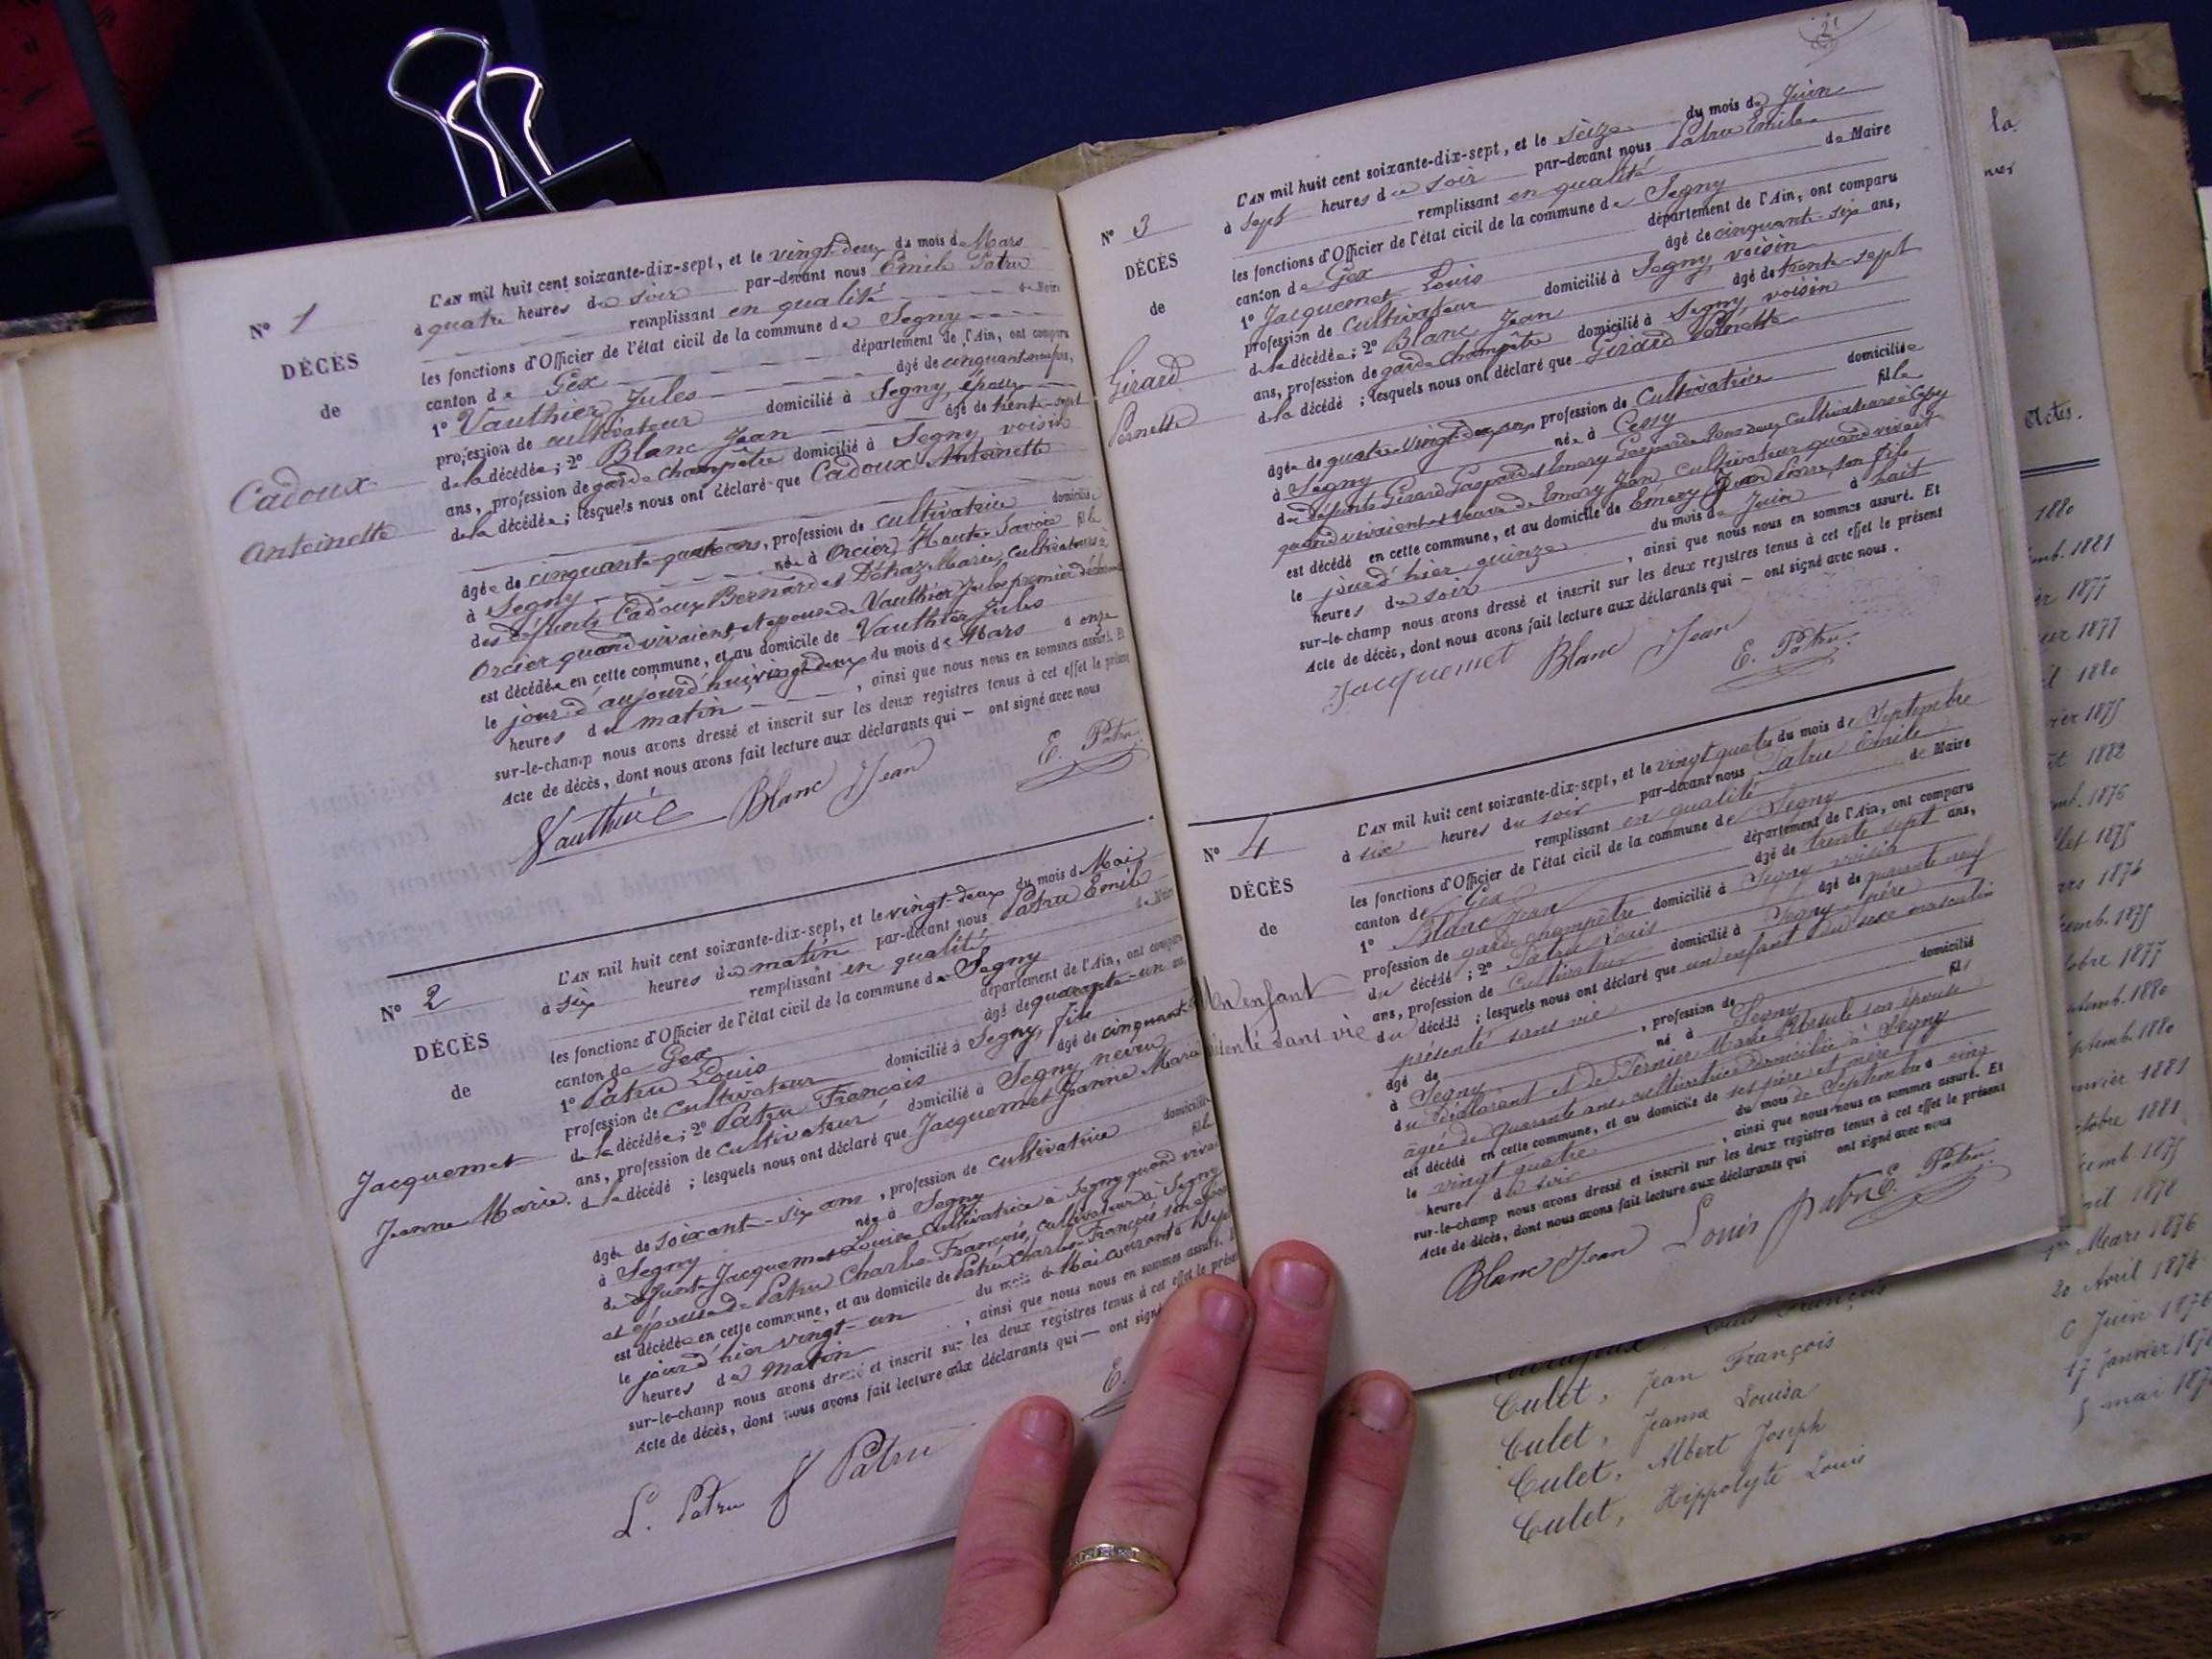 Nº 1
DÉCÈS
de
Cadoux
Antoinette
L'AN mil huit cent soixante-dix-sept, et le vingt-deux du mois de Mars
à quatre heures du soir par-devant nous Emile Patru
remplissant en qualité de Maire
les fonctions d'Officier de l'état civil de la commune de Segny
canton de Gex département de l'Ain, ont comparu
1º Vauthier Jules âgé de cinquante neuf ans,
profession de cultivateur domicilié à Segny, époux
de la décédée; 2º Blanc Jean âgé de trente-sept
ans, profession de garde champêtre domicilié à Segny voisin
de la décédée; lesquels nous ont déclaré que Cadoux Antoinette
âgée de cinquante quatre ans, profession de cultivatrice domiciliée
à Segny née à Orcier, Haute Savoie fille
des défunts Cadoux Bernard et Détraz Marie, cultivateurs à
Orcier quand vivaient, et épouse de Vauthier Jules premier déclarant
est décédée en cette commune, et au domicile de Vauthier Jules
le jour d'aujourd'hui vingt deux du mois de Mars à onze
heures du matin, ainsi que nous nous en sommes assuré. Et
sur-le-champ nous avons dressé et inscrit sur les deux registres tenus à cet effet le présent
acte de décès, dont nous avons fait lecture aux déclarants qui – ont signé avec nous
Vauthié Blanc Jean E. Patru
Nº 2
DÉCÈS
de
Jacquemet
Jeanne Marie.
L'AN mil huit cent soixante-dix-sept, et le vingt-deux du mois de Mai
à six heures du matin par-devant nous Patru Emile
remplissant en qualité de Maire
les fonctions d'Officier de l'état civil de la commune de Segny
canton de Gex département de l'Ain, ont comparu
1º Patru Louis âgé de quarante-un ans
profession de cultivateur domicilié à Segny, fils
de la décédée; 2º Patru François âgé de cinquante
ans, profession de cultivateur domicilié à Segny neveu
de la décédé; lesquels nous ont déclaré que Jacquemet Jeanne Marie
âgée de soixante-six ans, profession de cultivatrice domiciliée
à Segny née à Segny fille
de défunte Jacquemet Louise cultivatrice à Segny quand vivait
et épouse de Patru Charles-François, cultivateur à Segny
est décédée en cette commune, et au domicile de Patru Charles-François son époux
le jour d'hier vingt-un du mois de Mai courant à sept
heures du matin, ainsi que nous nous en sommes assuré.
sur-le-champ nous avons dressé et inscrit sur les deux registres tenus à cet effet le présent
acte de décès, dont nous avons fait lecture aux déclarants qui – ont signé
E.
L. Patru f Patru
Nº 3
DÉCÈS
de
Girard
Pernette
L'AN mil huit cent soixante-dix-sept, et le seize du mois de Juin
à sept heures du soir par-devant nous Patru Emile
remplissant en qualité de Maire
les fonctions d'Officier de l'état civil de la commune de Segny
canton de Gex département de l'Ain, ont comparu
1º Jacquemet Louis âgé de cinquante-six ans,
profession de cultivateur domicilié à Segny, voisin
de la décédée; 2º Blanc Jean âgé de trente-sept
ans, profession de garde champêtre domicilié à Segny voisin
de la décédé; lesquels nous ont déclaré que Girard Pernette
âgée de quatre-vingt-deux ans, profession de Cultivatrice domiciliée
à Segny née à Cessy fille
de défunts Girard Gaspard et Emery Gasparde tous deux cultivateurs à Cessy
quand vivaient et veuve de Emery Jean, cultivateur quand vivait
est décédé en cette commune, et au domicile de Emery Jean Pierre, son fils
le jour d'hier quinze du mois de Juin à huit
heures du soir, ainsi que nous nous en sommes assuré. Et
sur-le-champ nous avons dressé et inscrit sur les deux registres tenus à cet effet le présent
acte de décès, dont nous avons fait lecture aux déclarants qui – ont signé avec nous.
Jacquemet Blanc Jean E. Patru
Nº 4
DÉCÈS
de
Un enfant
présenté sans vie
L'AN mil huit cent soixante-dix-sept, et le vingt quatre du mois de Septembre
à six heures du soir par-devant nous Patru Emile
remplissant en qualité de Maire
les fonctions d'Officier de l'état civil de la commune de Segny
canton de Gex département de l'Ain, ont comparu
1º Blanc Jean âgé de trente sept ans,
profession de garde champêtre domicilié à Segny voisin
du décédé; 2º Patru Louis âgé de quarante neuf
ans, profession de Cultivateur domicilié à Segny père
du décédé; lesquels nous ont déclaré que un enfant du sexe masculin
présenté sans vie
âgé de, profession de domicilié
à Segny né à Segny fils
du déclarant et de Pernier Marie Ursule son épouse
âgée de quarante ans, cultivatrice domiciliée à Segny
est décédé en cette commune, et au domicile de ses père et mère
le vingt quatre du mois de Septembre à cinq
heures du soir, ainsi que nous nous en sommes assuré. Et
sur-le-champ nous avons dressé et inscrit sur les deux registres tenus à cet effet le présent
acte de décès, dont nous avons fait lecture aux déclarants qui ont signé avec nous
Blanc Jean Louis patru E. Patru
Actes.
1880
1881
1877
1877
1880
1875
1882
1876
1875
1874
1875
1877
1880
1880
1881
1881
1875
1878
Mars 1876
20 Avril 1874
Culet, Jean François 6 Juin 1876
Culet, Jeanne Louisa 17 Janvier
Culet, Albert Joseph 5 mai
Culet, Hippolyte Louis